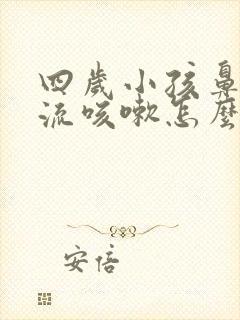 四歲小孩鼻
流咳嗽怎麼
安倍